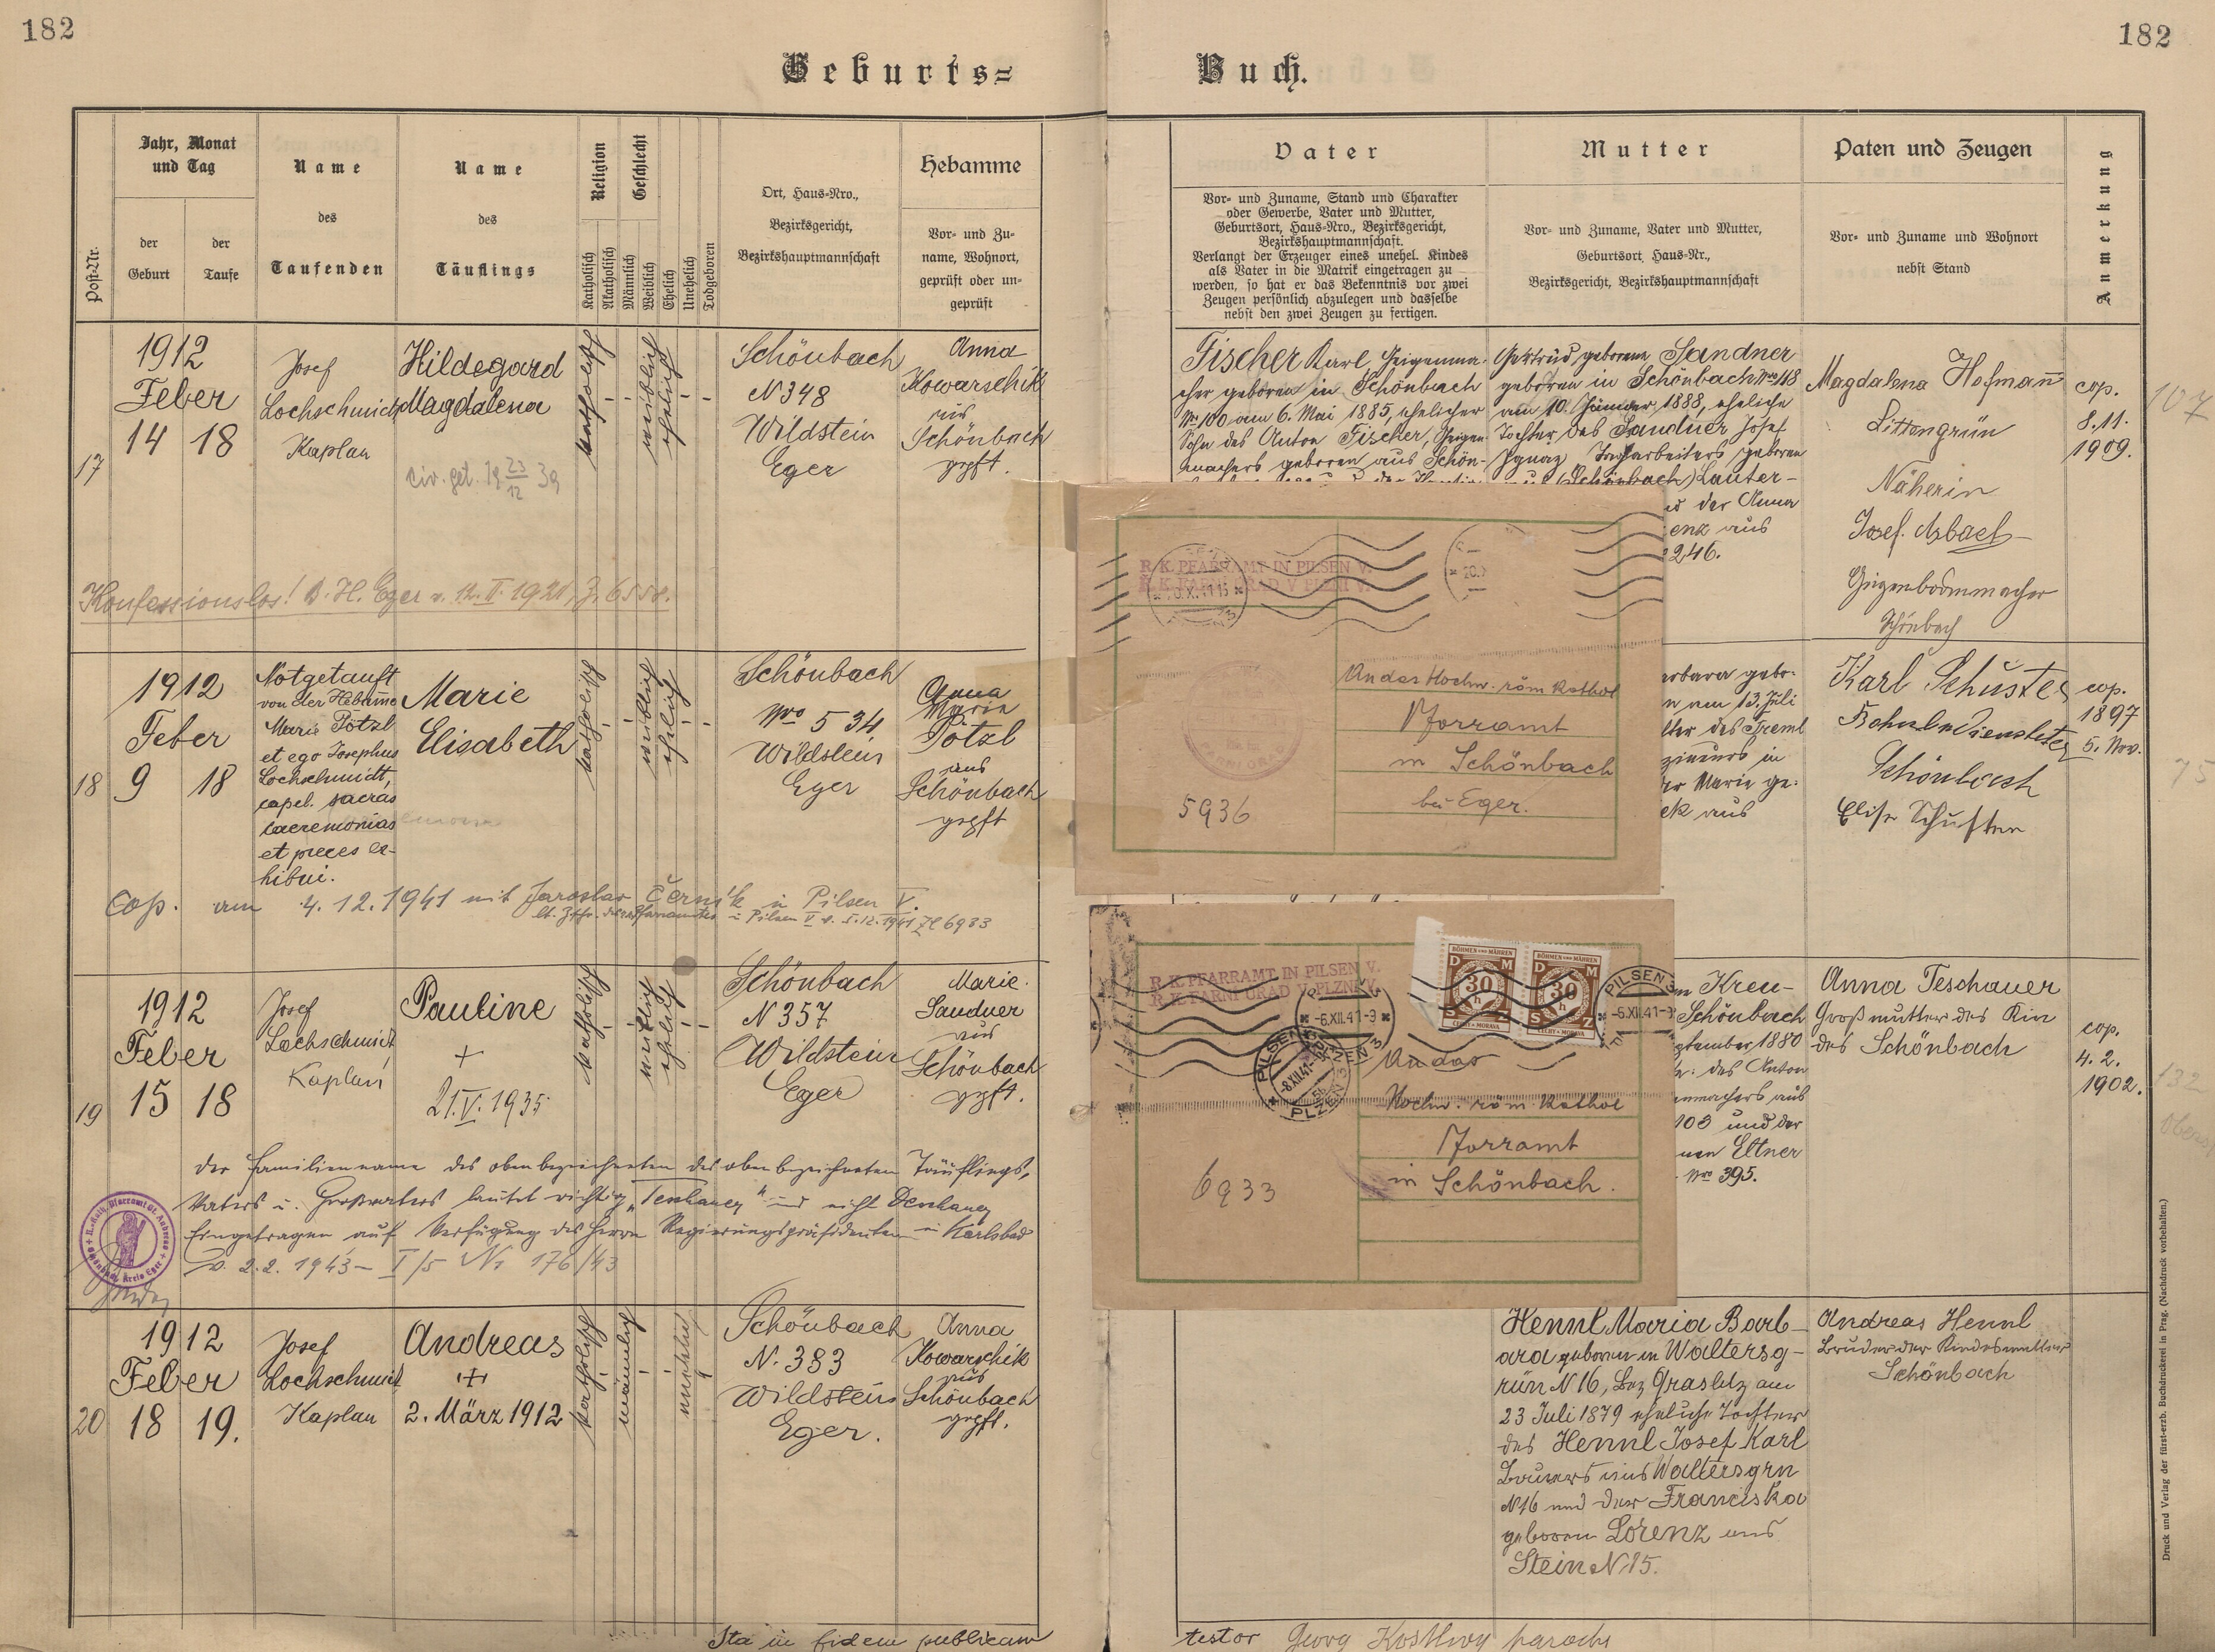 182
182
Geburts=
Buch.
Post-Nr.
Jahr, Monat
und Tag
der
Geburt
der
Taufe
Name
des
Taufenden
Name
des
Täuflings
Religion
Katholisch
Akatholisch
Geschlecht
Männlich
Weiblich
Ehelich
Unehelich
Todgeboren
Ort, Haus-Nro.,
Bezirksgericht,
Bezirkshauptmannschaft
Hebamme
Vor- und Zu-
name, Wohnort,
geprüft oder un-
geprüft
Vater
Vor- und Zuname, Stand und Charakter
oder Gewerbe, Vater und Mutter,
Geburtsort, Haus-Nro., Bezirksgericht,
Bezirkshauptmannschaft.
Verlangt der Erzeuger eines unehel. Kindes
als Vater in die Matrik eingetragen zu
werden, so hat er das Bekenntnis vor zwei
Zeugen persönlich abzulegen und dasselbe
nebst den zwei Zeugen zu fertigen.
Mutter
Vor- und Zuname, Vater und Mutter,
Geburtsort, Haus-Nr.,
Bezirksgericht, Bezirkshauptmannschaft
Paten und Zeugen
Vor- und Zuname und Wohnort
nebst Stand
Anmerkung
17
1912
Feber
14 18
Josef
Lochschmidt
Kaplan
Hildegard
Magdalena
civ. get. 19 23/12 39
katholisch
weiblich
ehelich
Schönbach
N 348
Wildstein
Eger
Anna
Kowarschik
aus
Schönbach
gepft.
Fischer Karl, Geigenma-
cher geboren in Schönbach
Nr. 100 am 6. Mai 1885, ehelicher
Sohn des Anton Fischer, Geigen-
machers geboren aus Schön-
Gertrud geborene Sandner
geboren in Schönbach Nro 118
am 10. Jänner 1888, eheliche
Tochter des Sandner Josef
Ignaz Tagarbeiters geboren
aus (Schönbach) Lauter-
der Anna
enz aus
246.
Magdalena Hofmann
Littengrün
Näherin
Josef
Geigenbodenmacher
Schönbach
cop.
8.11.
1909.
107
Konfessionslos! B. H. Eger v. 12. II. 1921, Z. 6558.
18
1912
Feber
9 18
Notgetauft
von der Hebamme
Marie Pötzl
et ego Josephus
Lochschmidt,
capel. sacras
caeremonias
et preces ex-
hibui.
Marie
Elisabeth
katholisch
weiblich
ehelich
Schönbach
Nro 534
Wildstein
Eger
Anna
Maria
Pötzl
aus
Schönbach
gepft
arbara gebo-
n am 13. Juli
ter des Treml
in
er Marie ge-
ek aus
Karl Schuster
Bahnbediensteter
Schönbach
Elise Schuster
cop.
1897
5. Nov.
75
cop. am 4.12.1941 mit Jaroslav Černik in Pilsen V.
lt. Zschr. des Pfarramtes in Pilsen V v. 5.12.1941 Zl 6933
R. K. PFARRAMT IN PILSEN V.
R. K. FARNÍ ÚŘAD V PLZNI V.
An das Hochw. röm. kathol
Pfarramt
in Schönbach
bei Eger.
5936
R. K. PFARRAMT IN PILSEN V.
R. K. FARNÍ ÚŘAD V PLZNI V.
BÖHMEN UND MÄHREN
D M
30
h
S Z
ČECHY A MORAVA
BÖHMEN UND MÄHREN
D M
30
S Z
ČECHY A MORAVA
-6.XII.41-9
PILSEN 3
-6.XII.41-9
PILSEN 3
-8.XII.41
PLZEŇ 3
An das
Hochw. röm. kathol
Pfarramt
in Schönbach.
6933
19
1912
Feber
15 18
Josef
Lochschmidt
Kaplan
Pauline
+
21.V.1935
katholisch
weiblich
ehelich
Schönbach
N 357
Wildstein
Eger
Marie
Sandner
aus
Schönbach
gepft.
Kreu-
Schönbach
ptember 1880
des Anton
enmachers aus
103 und der
Eltner
Nro 395.
Anna Teschauer
Großmutter des Kin
des Schönbach
cop.
4. 2.
1902.
132
Der Familienname des oben bezeichneten des oben bezeichneten Täuflings,
Vaters u. Großvaters lautet richtig „Teschauer" und nicht Deschauer
Eingetragen auf Verfügung des Herrn Regierungspräsidenten in Karlsbad
v. 2.2. 1943 - I/5 Nr 176/43
20
1912
Feber
18 19.
Josef
Lochschmidt
Kaplan
Andreas
+
2. März 1912
katholisch
männlich
unehelich
Schönbach
N. 383
Wildstein
Eger.
Anna
Kowarschik
aus
Schönbach
gepft.
Hennl Maria Barb-
ara geboren in Waltersg-
rün N 16, Bez Graslitz am
23 Juli 1879 eheliche Tochter
des Hennl Josef Karl
Bauers aus Waltersgrn
N 16 und der Franciska
geboren Lorenz aus
Stein N 15.
Andreas Hennl
Bruder der Kindesmutter
Schönbach
Ita in fidem publicam
testor Georg Kosttwy parochi
Druck und Verlag der fürst-erzb. Buchdruckerei in Prag. (Nachdruck vorbehalten.)